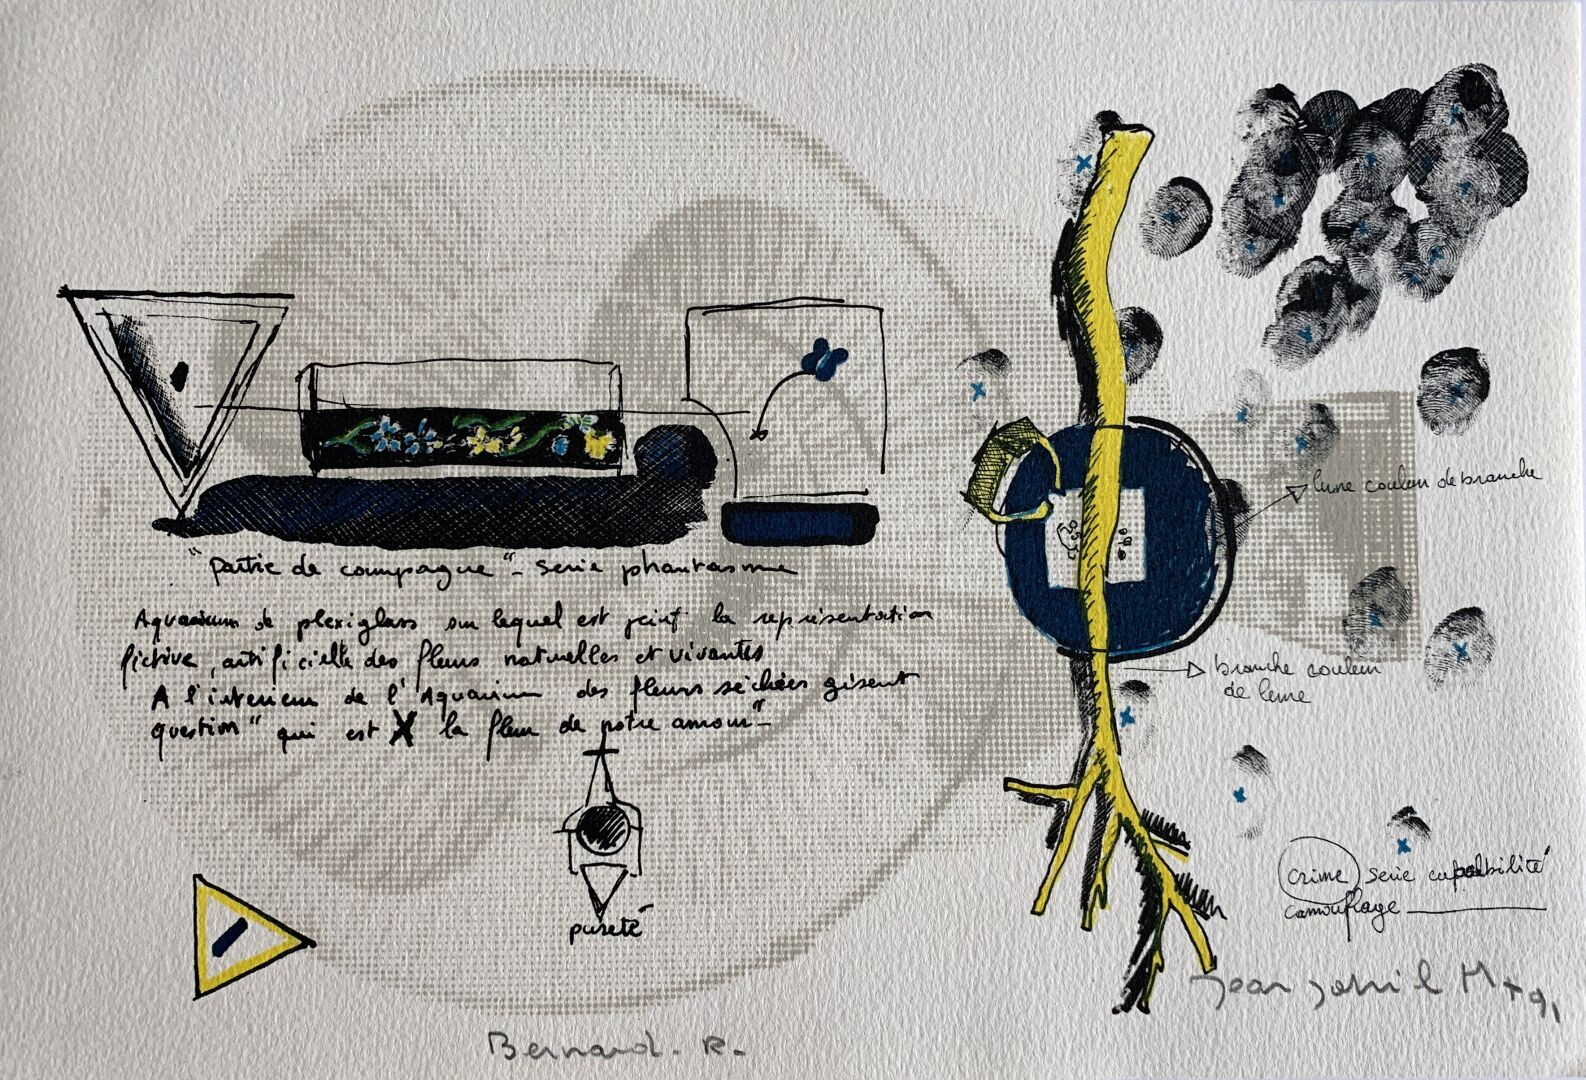 "partie de campagne" - serie phantasme
Aquarium de plexiglass sur lequel est peint la représentation
fictive, artificielle des fleurs naturelles et vivantes
A l'interieur de l'Aquarium des fleurs séchées gisent
question" qui est X la fleur de notre amour"-
pureté
lune couleur de branche
branche couleur
de lune
crime serie culpabilité
camouflage
Bernard. R.
Jean